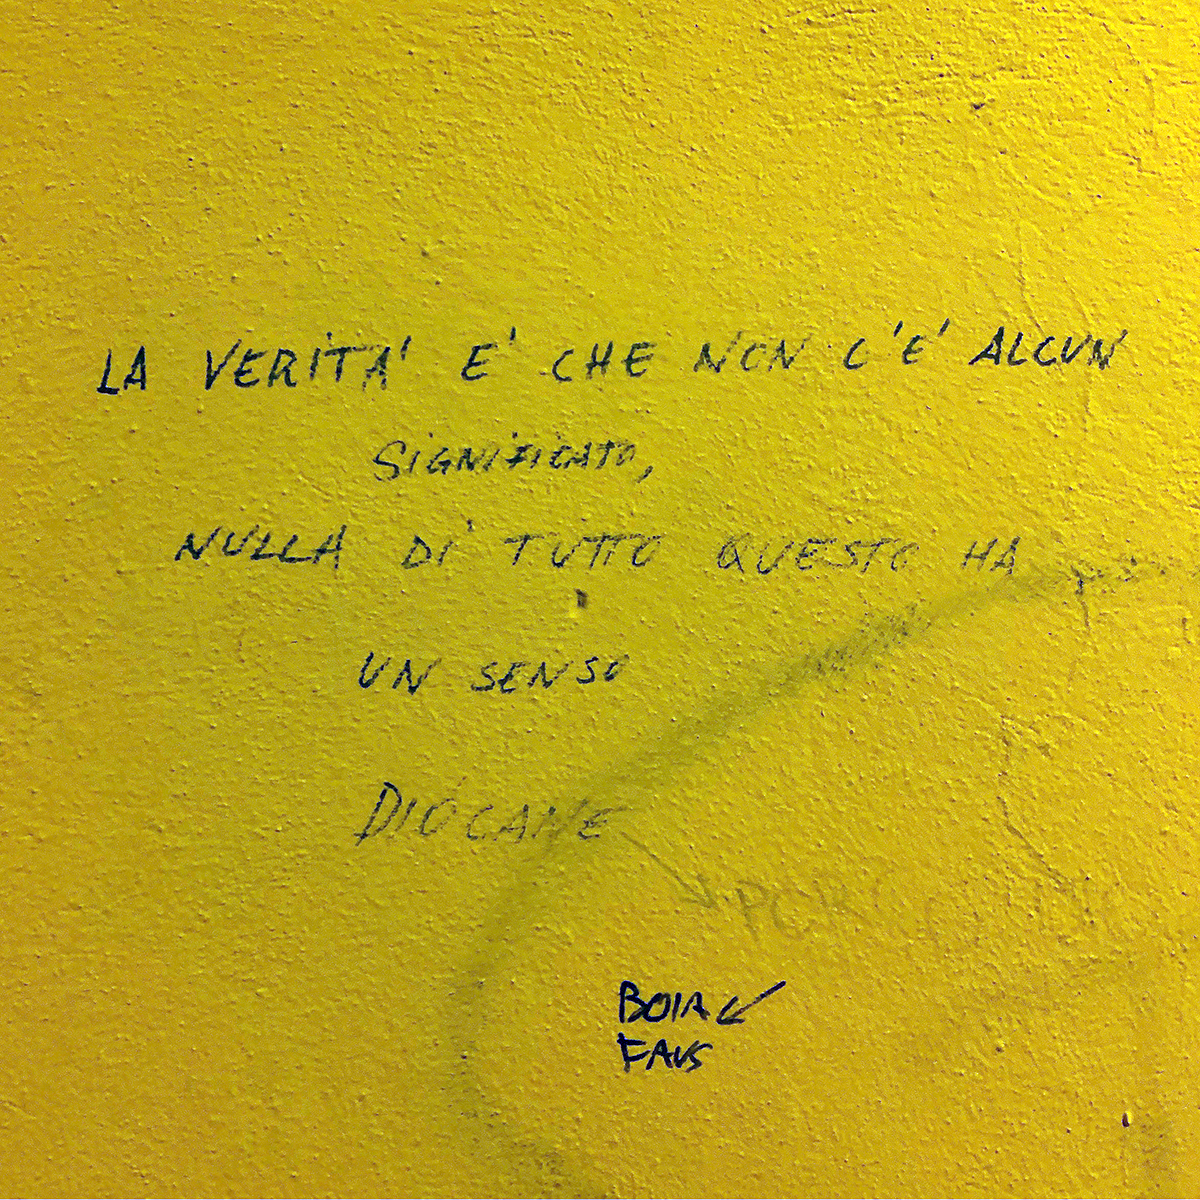 LA VERITA' E' CHE NON C'E' ALCUN
SIGNIFICATO,
NULLA DI TUTTO QUESTO HA
UN SENSO
DIOCANE
PORCO
BOIA
FAUS